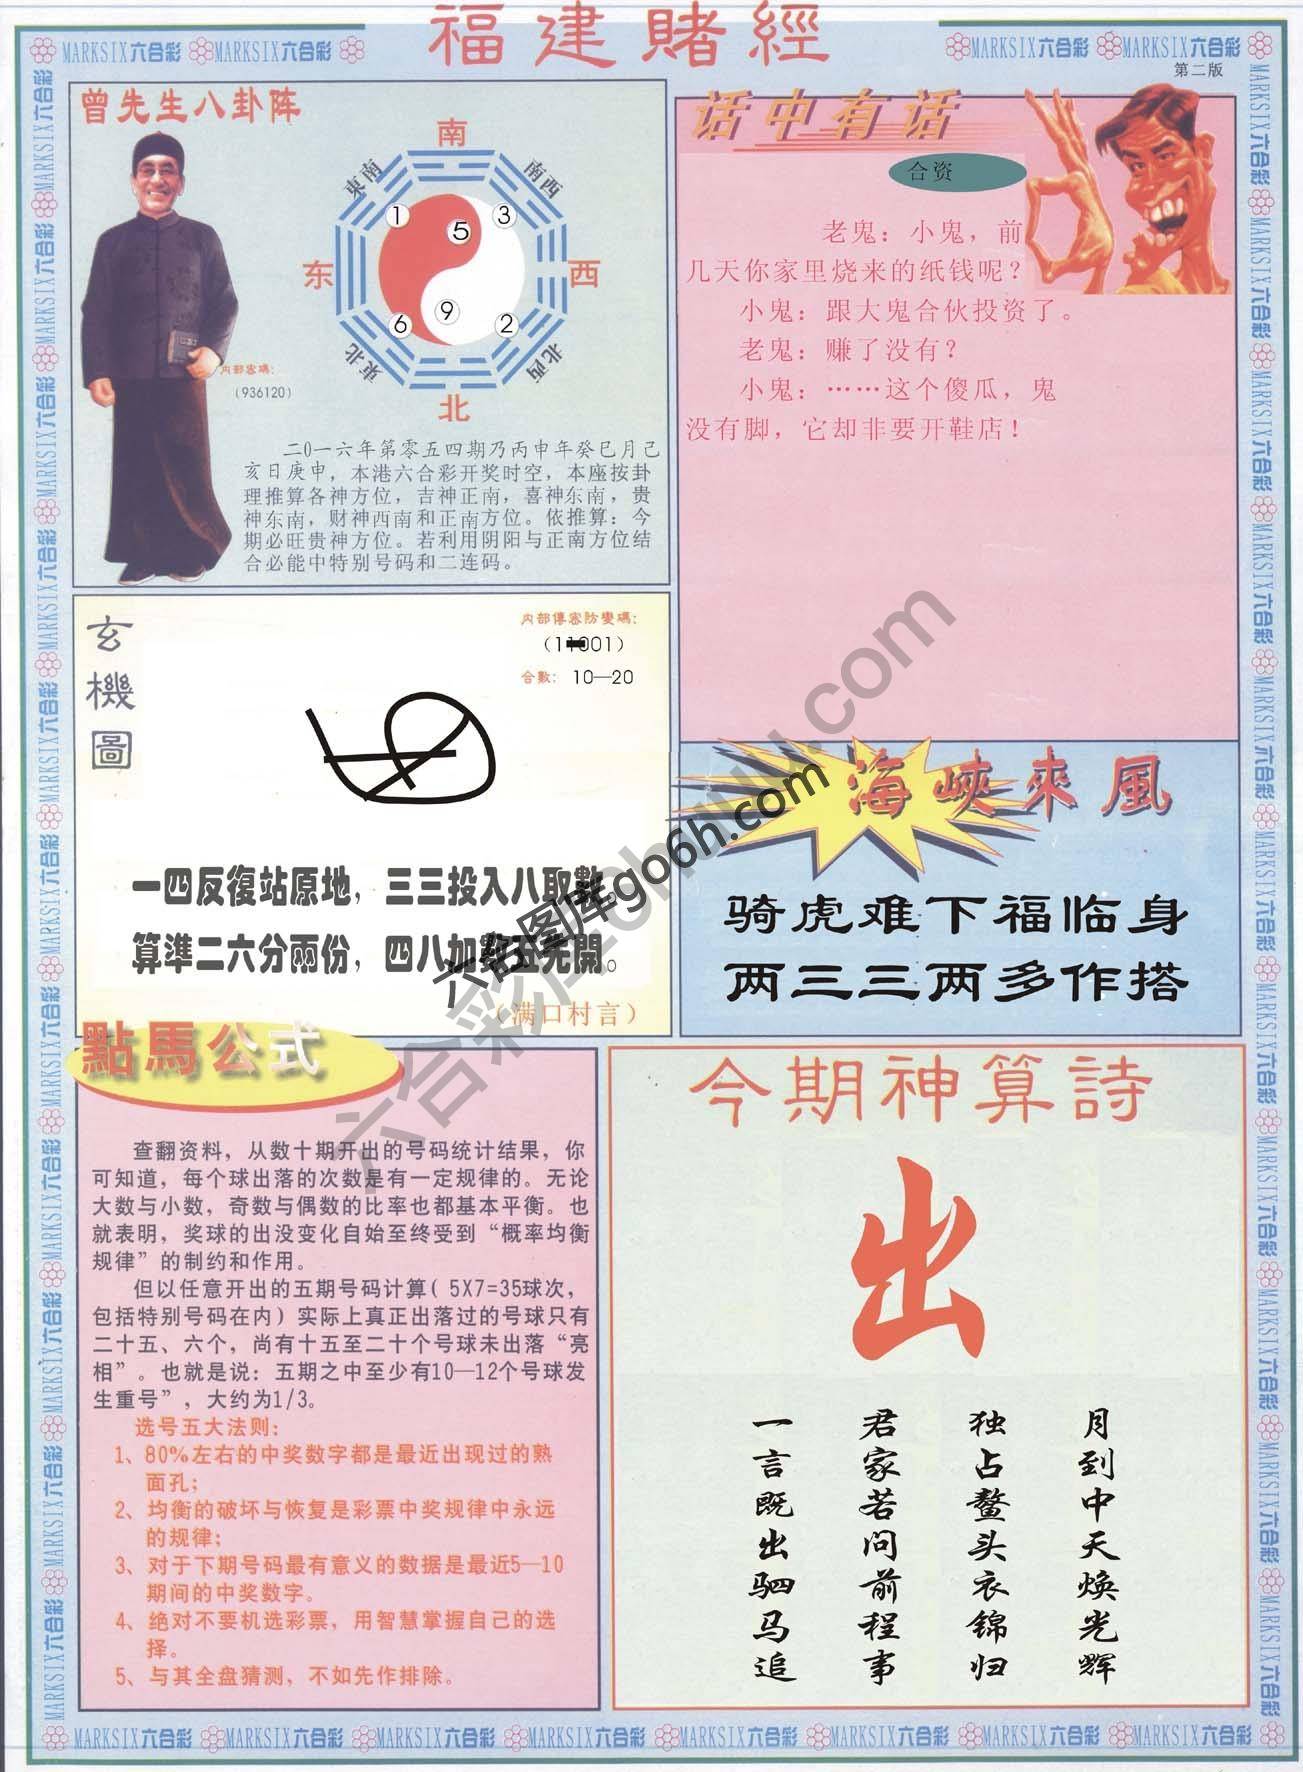 福建賭經
MARKSIX六合彩 MARKSIX六合彩
MARKSIX六合彩 MARKSIX六合彩
第二版
曾先生八卦阵
南
東南
南西
1
5
3
东
西
6
9
2
東北
北西
北
内部密碼:
(936120)
二0一六年第零五四期乃丙申年癸巳月己
亥日庚申，本港六合彩开奖时空，本座按卦
理推算各神方位，吉神正南，喜神东南，贵
神东南，财神西南和正南方位。依推算：今
期必旺贵神方位。若利用阴阳与正南方位结
合必能中特别号码和二连码。
话中有话
合资
老鬼：小鬼，前
几天你家里烧来的纸钱呢？
小鬼：跟大鬼合伙投资了。
老鬼：赚了没有？
小鬼：……这个傻瓜，鬼
没有脚，它却非要开鞋店！
玄機圖
内部傳密防變碼:
合數: 10—20
一四反復站原地，三三投入八取數。
算準二六分兩份，四八加数
開。
（满口村言）
六合图库go6h.com
海峽來風
骑虎难下福临身
两三三两多作搭
點馬公式
查翻资料，从数十期开出的号码统计结果，你
可知道，每个球出落的次数是有一定规律的。无论
大数与小数，奇数与偶数的比率也都基本平衡。也
就表明，奖球的出没变化自始至终受到“概率均衡
规律”的制约和作用。
但以任意开出的五期号码计算( 5X7=35球次，
包括特别号码在内) 实际上真正出落过的号球只有
二十五、六个，尚有十五至二十个号球未出落“亮
相”。也就是说：五期之中至少有10—12个号球发
生重号”，大约为1/3。
选号五大法则：
1、80%左右的中奖数字都是最近出现过的熟
面孔；
2、均衡的破坏与恢复是彩票中奖规律中永远
的规律；
3、对于下期号码最有意义的数据是最近5—10
期间的中奖数字。
4、绝对不要机选彩票，用智慧掌握自己的选
择。
5、与其全盘猜测，不如先作排除。
今期神算詩
出
月到中天焕光辉
独占鳌头衣锦归
君家若问前程事
一言既出驷马追
MARKSIX六合彩 MARKSIX六合彩 MARKSIX六合彩 MARKSIX六合彩 MARKSIX六合彩 MARKSIX六合彩 MARKSIX六合彩 MARKSIX六合彩